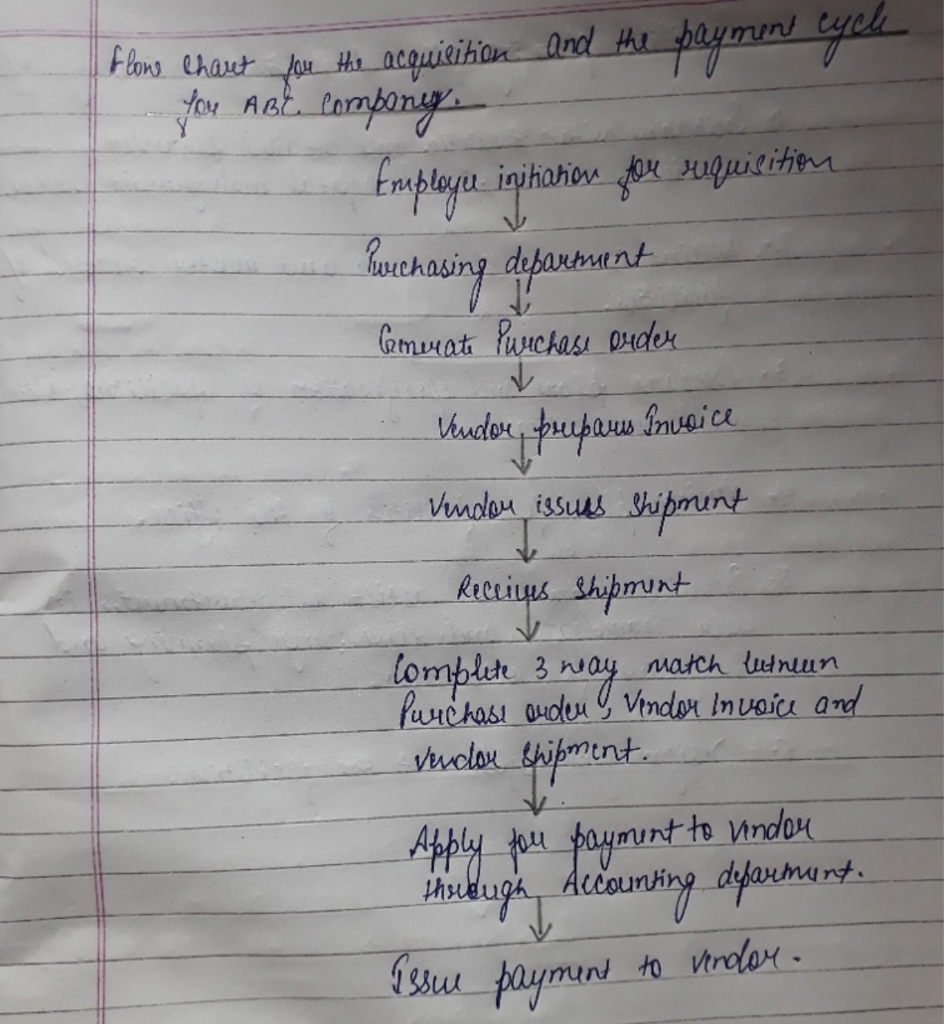 Flow Chart for the acquisition and the payment cycle
for ABC Company.
Employee initiation for requisition
↓
Purchasing department
↓
Generate Purchase order
↓
Vendor prepares Invoice
↓
Vendor issues Shipment
↓
Receives Shipment
↓
Complete 3 way match between
Purchase order, Vendor Invoice and
Vendor Shipment.
↓
Apply for payment to vendor
through Accounting department.
↓
Issue payment to vendor.